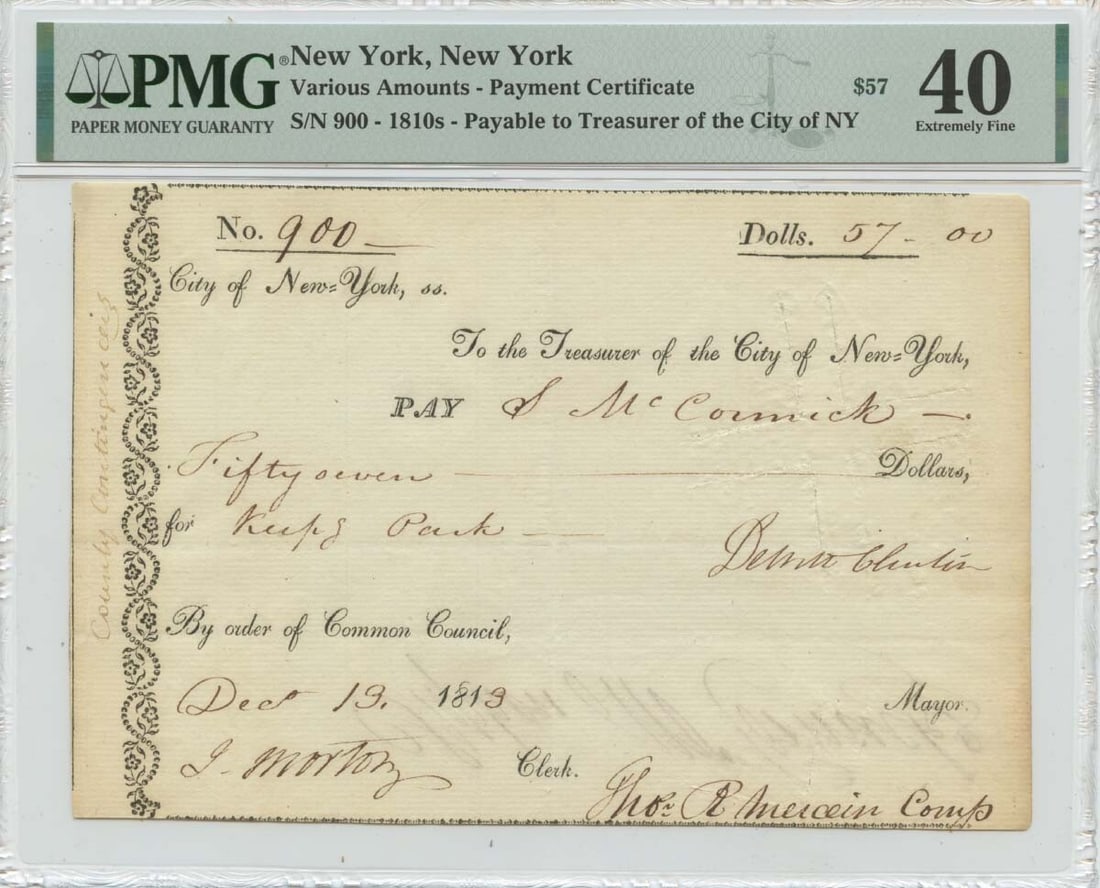 PMG®
PAPER MONEY GUARANTY
New York, New York
Various Amounts - Payment Certificate
S/N 900 - 1810s - Payable to Treasurer of the City of NY
$57
40
Extremely Fine
No. 900
Dolls. 57-00
City of New=York, ss.
To the Treasurer of the City of New=York,
PAY S McCormick
Fifty seven Dollars,
for Keepg Park
DeWitt Clinton
By order of Common Council,
Decr 13. 1813
Mayor.
J. Morton Clerk.
Thos R Mercein Comp
County Contingencies